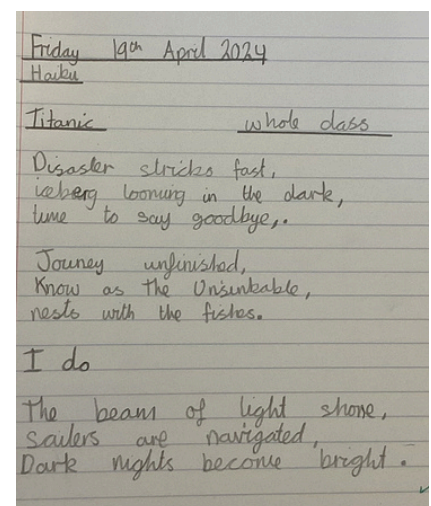 Friday 19th April 2024
Haiku
Titanic whole class
Disaster stricks fast,
iceberg looming in the dark,
time to say goodbye,.
Jouney unfinished,
Know as the Unsinkable,
rests with the fishes.
I do
The beam of light shone,
sailers are navigated,
Dark nights become bright.